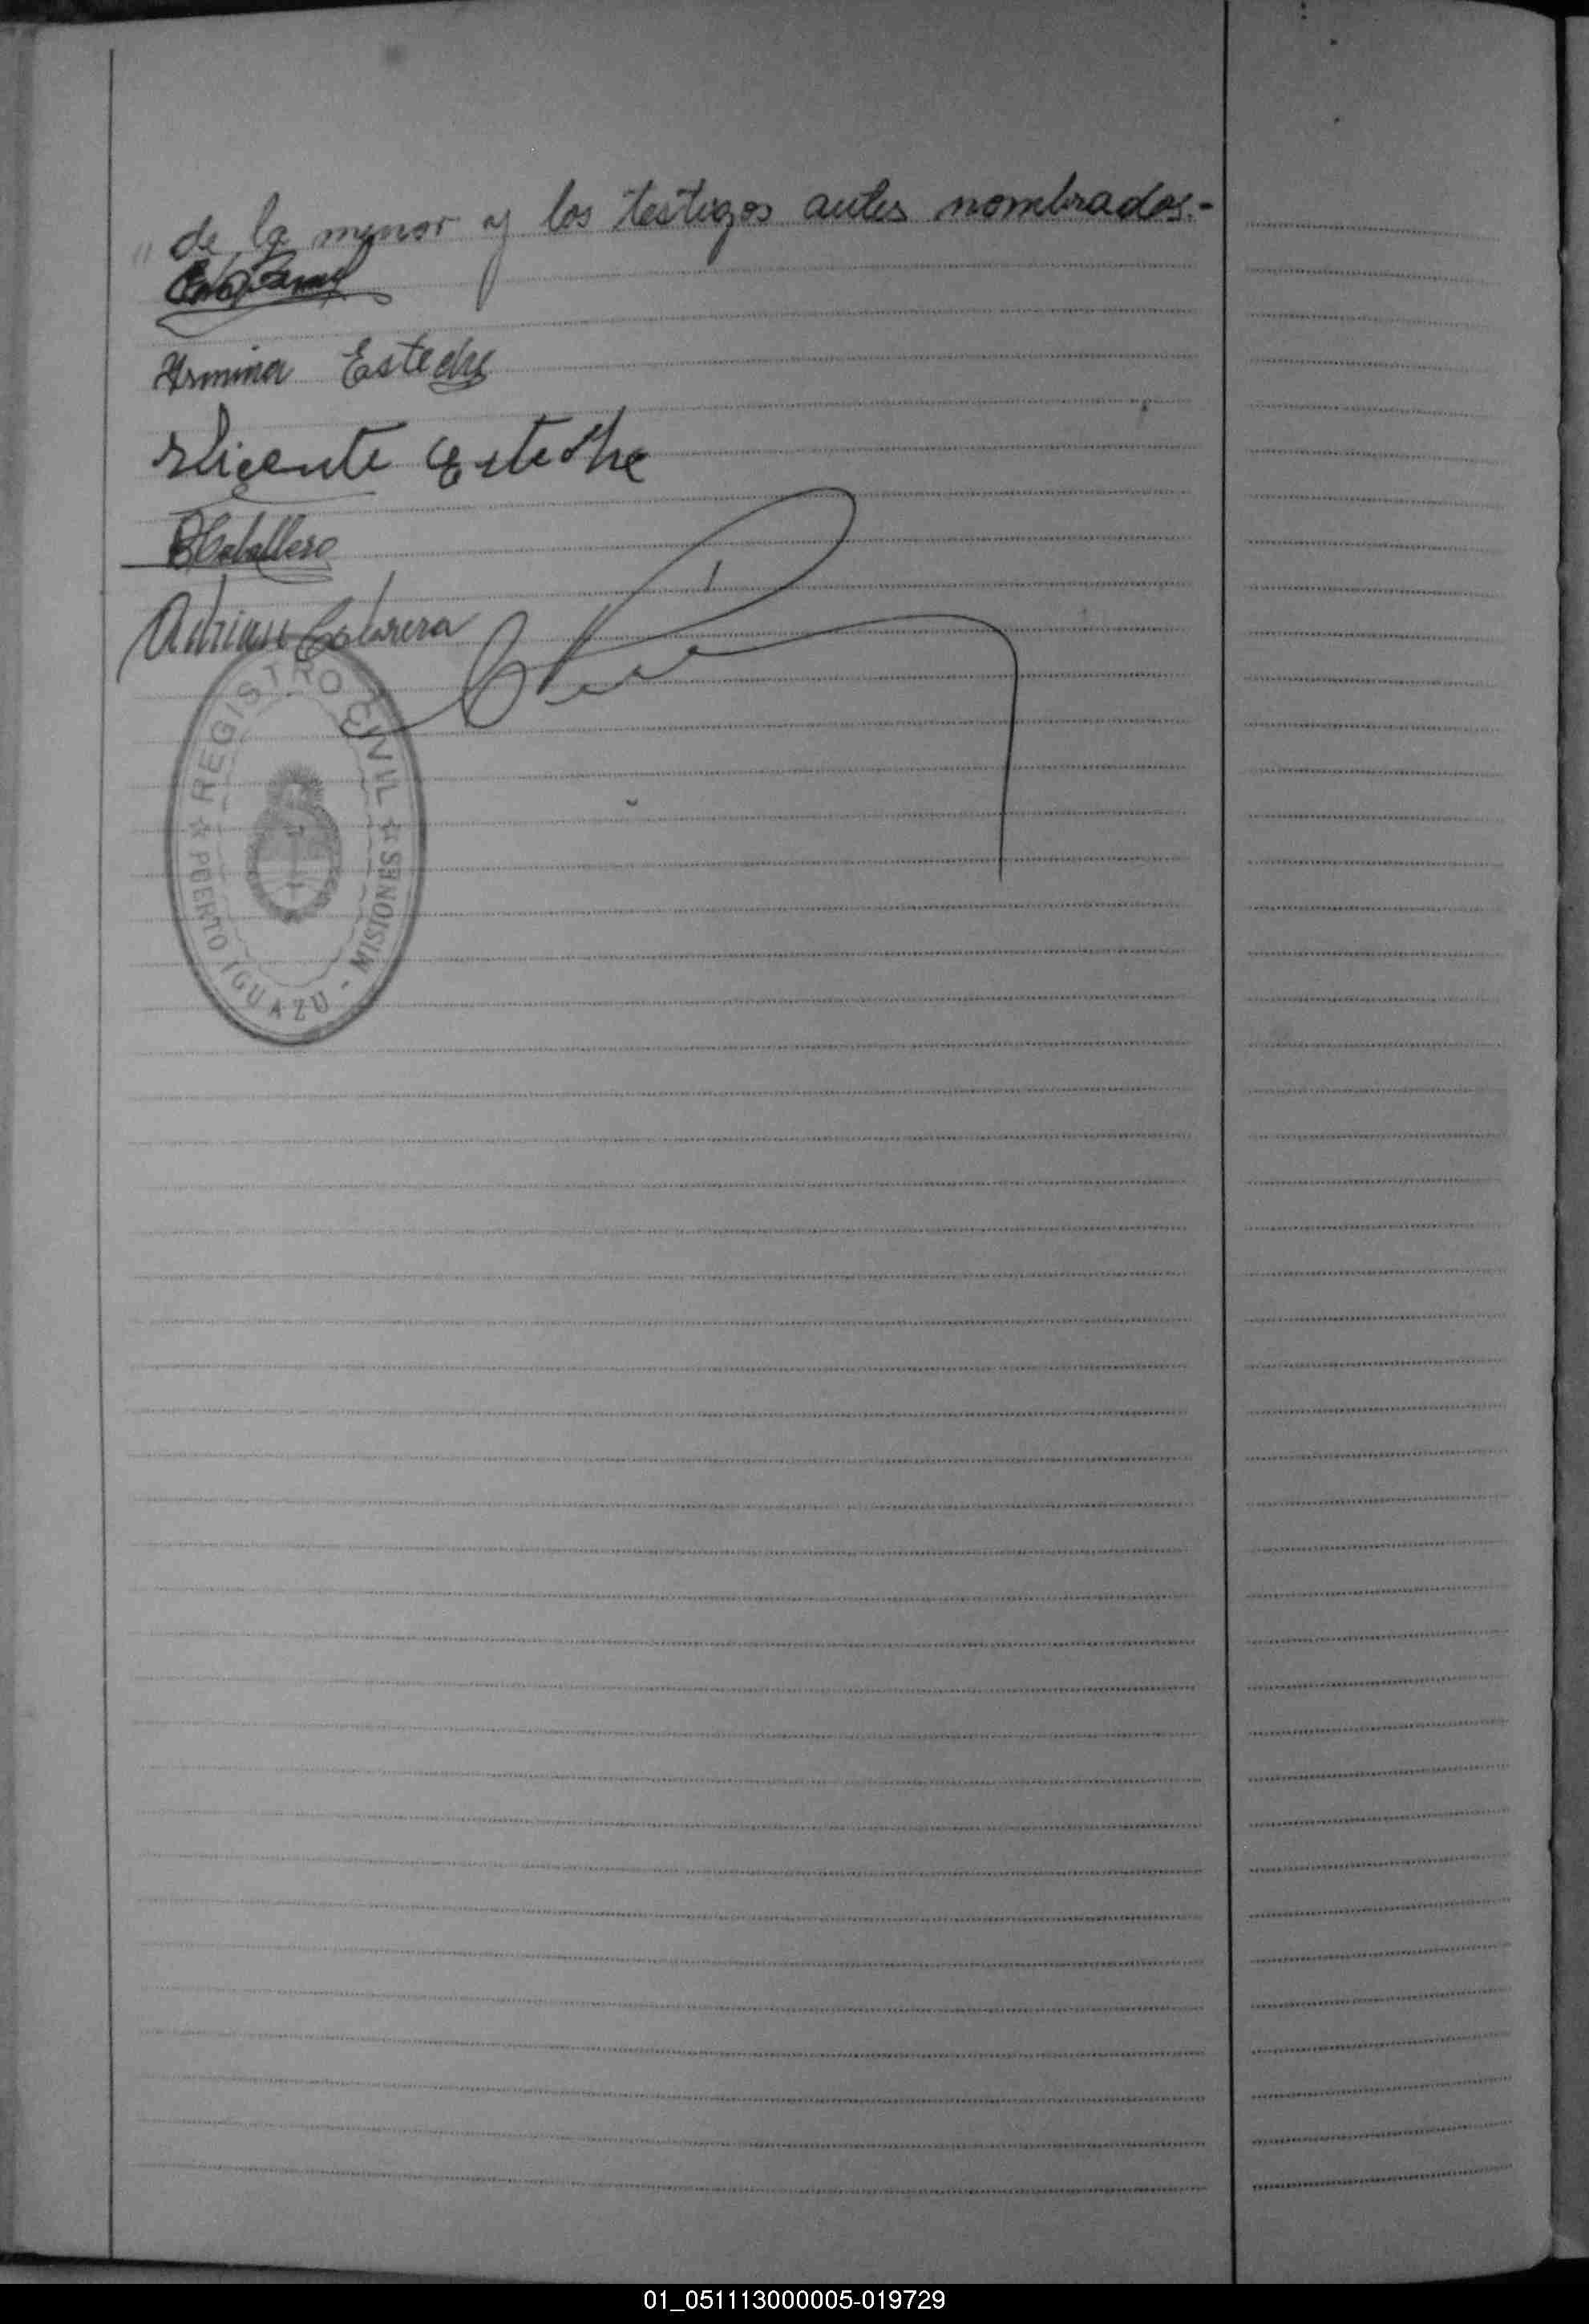 " de la menor y los testigos antes nombrados.-
Irmina Esteche
Vicente Esteche
Caballero
Adrian Cabrera
REGISTRO CIVIL
PUERTO IGUAZU - MISIONES
01_051113000005-019729